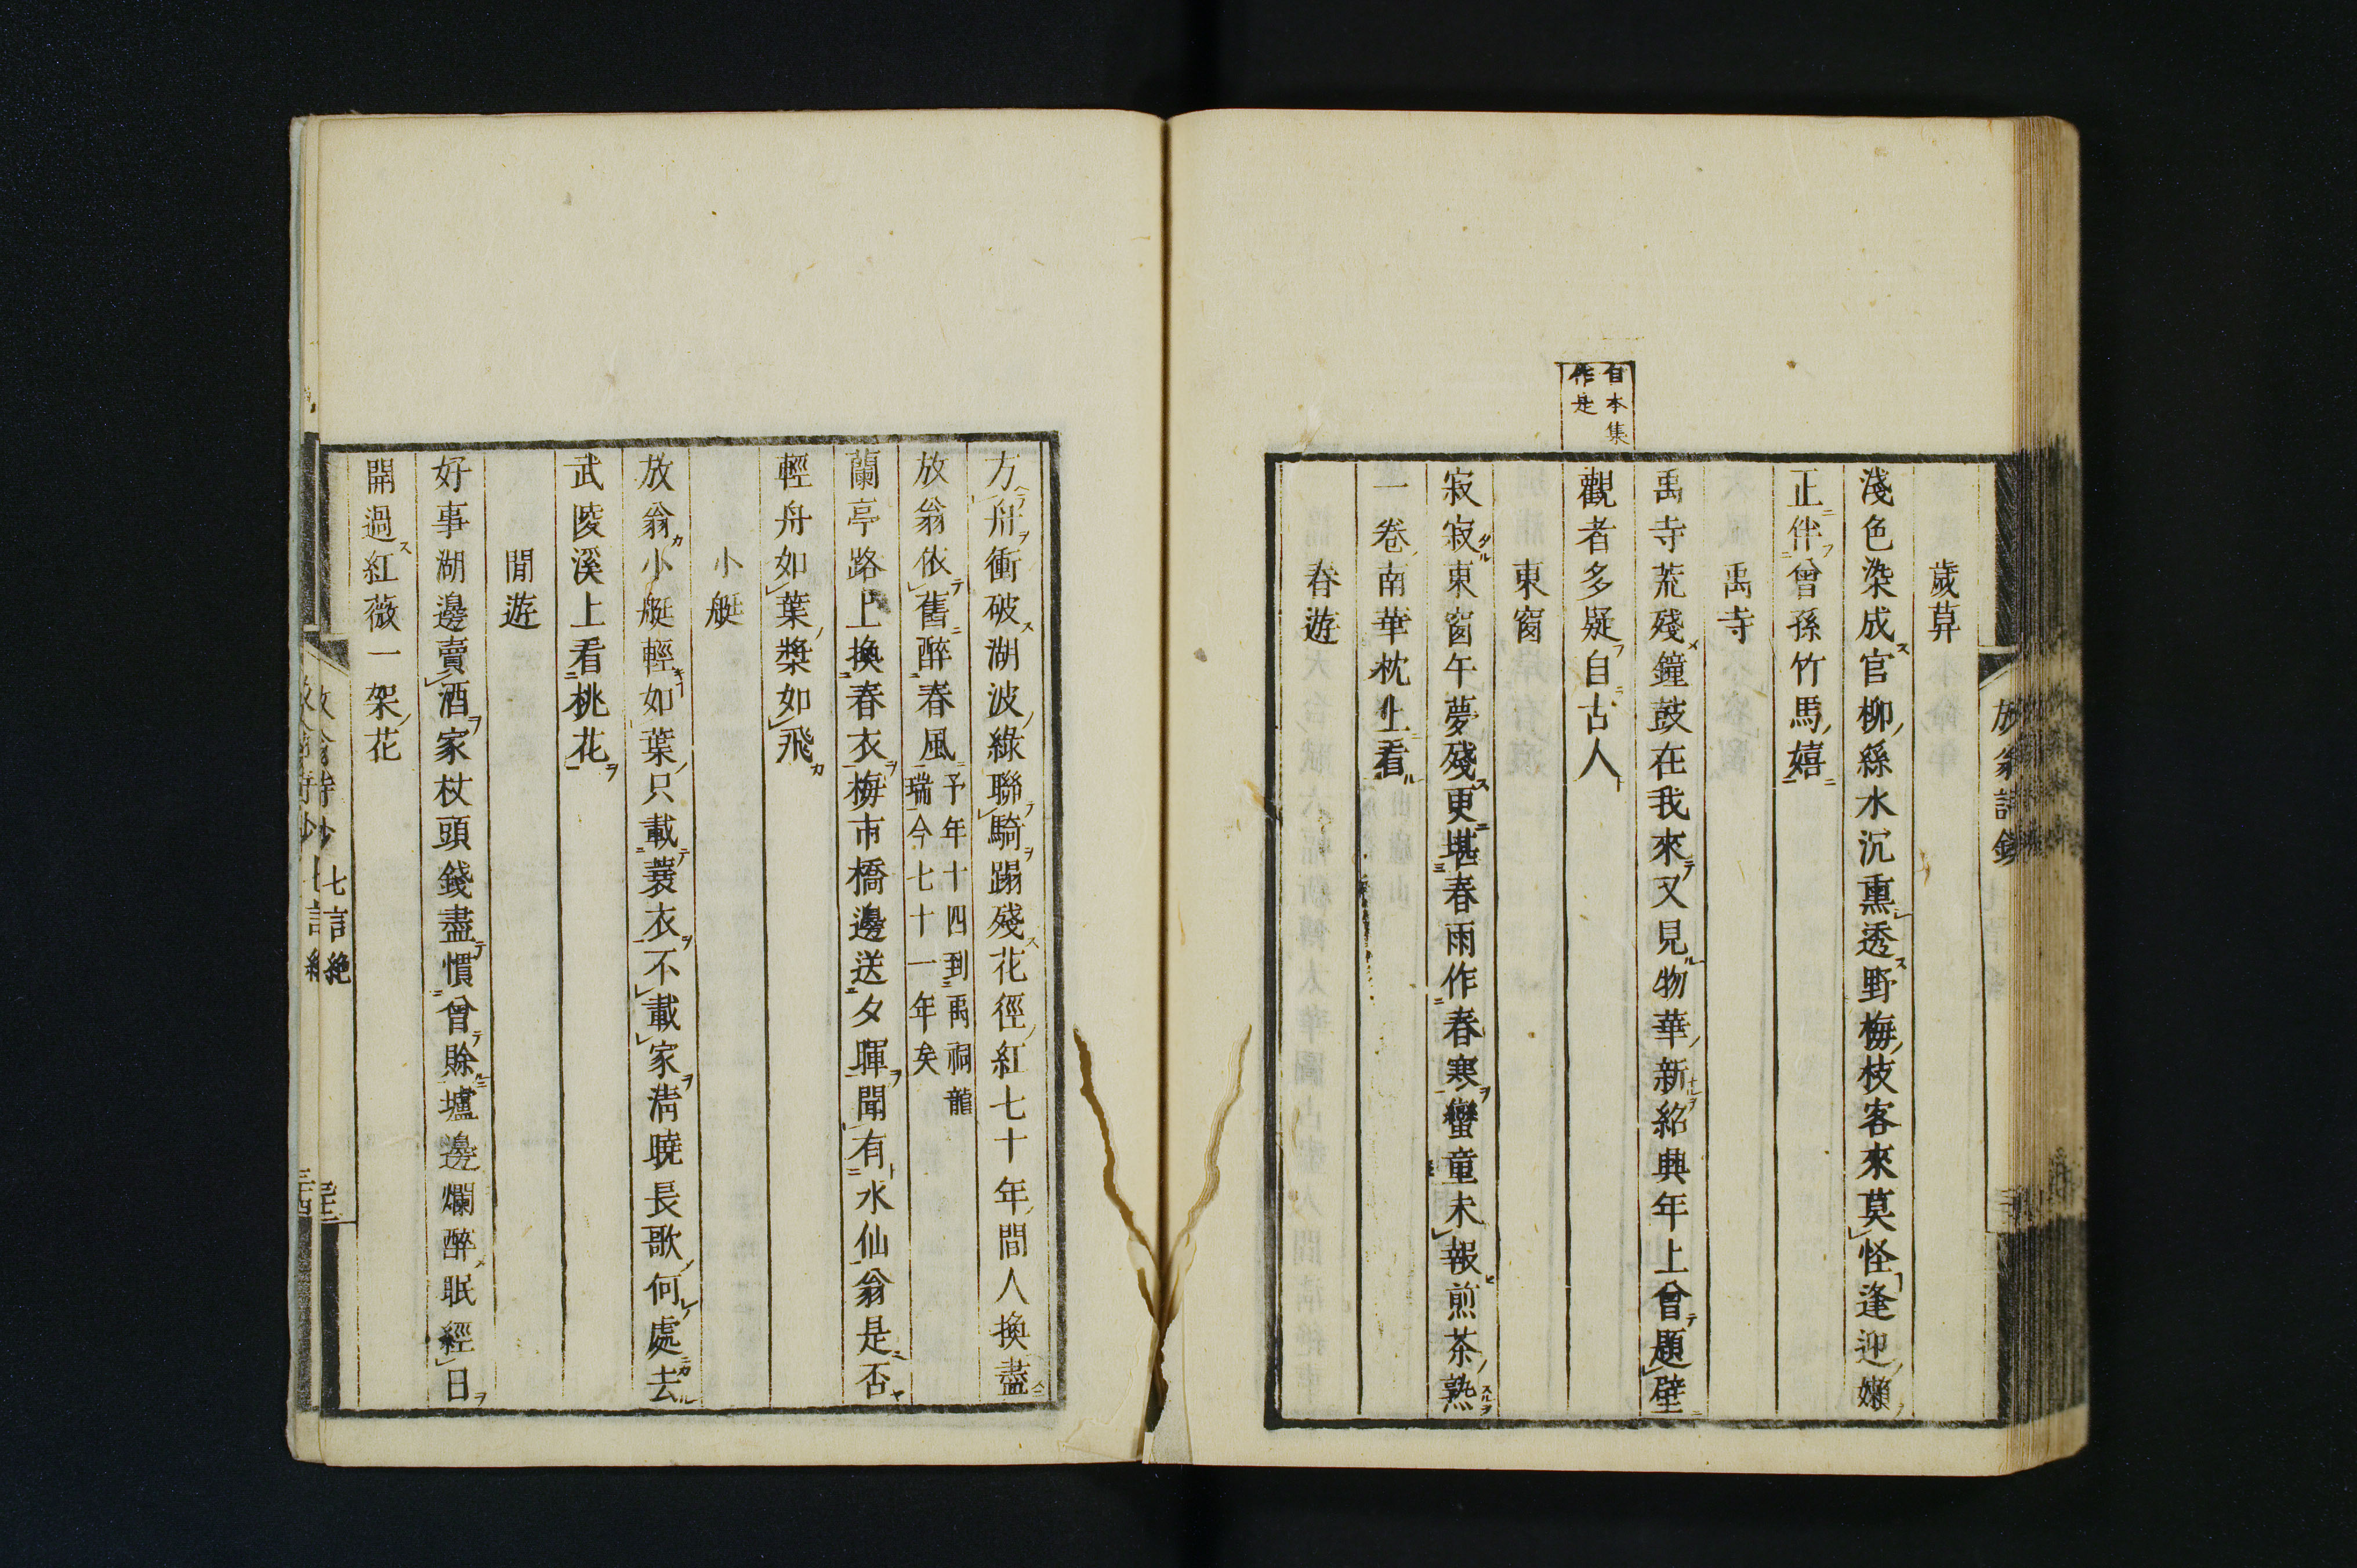 歲草
淺色染成官柳絲水沉熏透野梅枝客來莫怪逢迎嬾
正伴曾孫竹馬嬉
禹寺
禹寺荒殘鐘鼓在我來又見物華新紹興年上曾題壁
自本集
作是
觀者多疑自古人
東窗
寂寂東窗午夢殘更堪春雨作春寒蠻童未報煎茶熟
一卷南華枕上看
春遊
方舟衝破湖波綠聯騎蹋殘花徑紅七十年間人換盡
放翁依舊醉春風
予年十四到禹祠龍
瑞今七十一年矣
蘭亭路上換春衣梅市橋邊送夕暉聞有水仙翁是否
輕舟如葉槳如飛
小艇
放翁小艇輕如葉只載蓑衣不載家清曉長歌何處去
武陵溪上看桃花
閒遊
好事湖邊賣酒家杖頭錢盡慣曾賒壚邊爛醉眠經日
開過紅薇一架花
七言絕